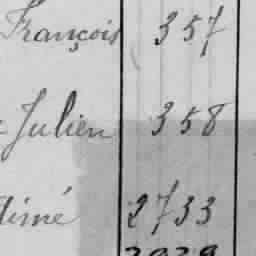 François 357
Julien 358
Aimé 2733